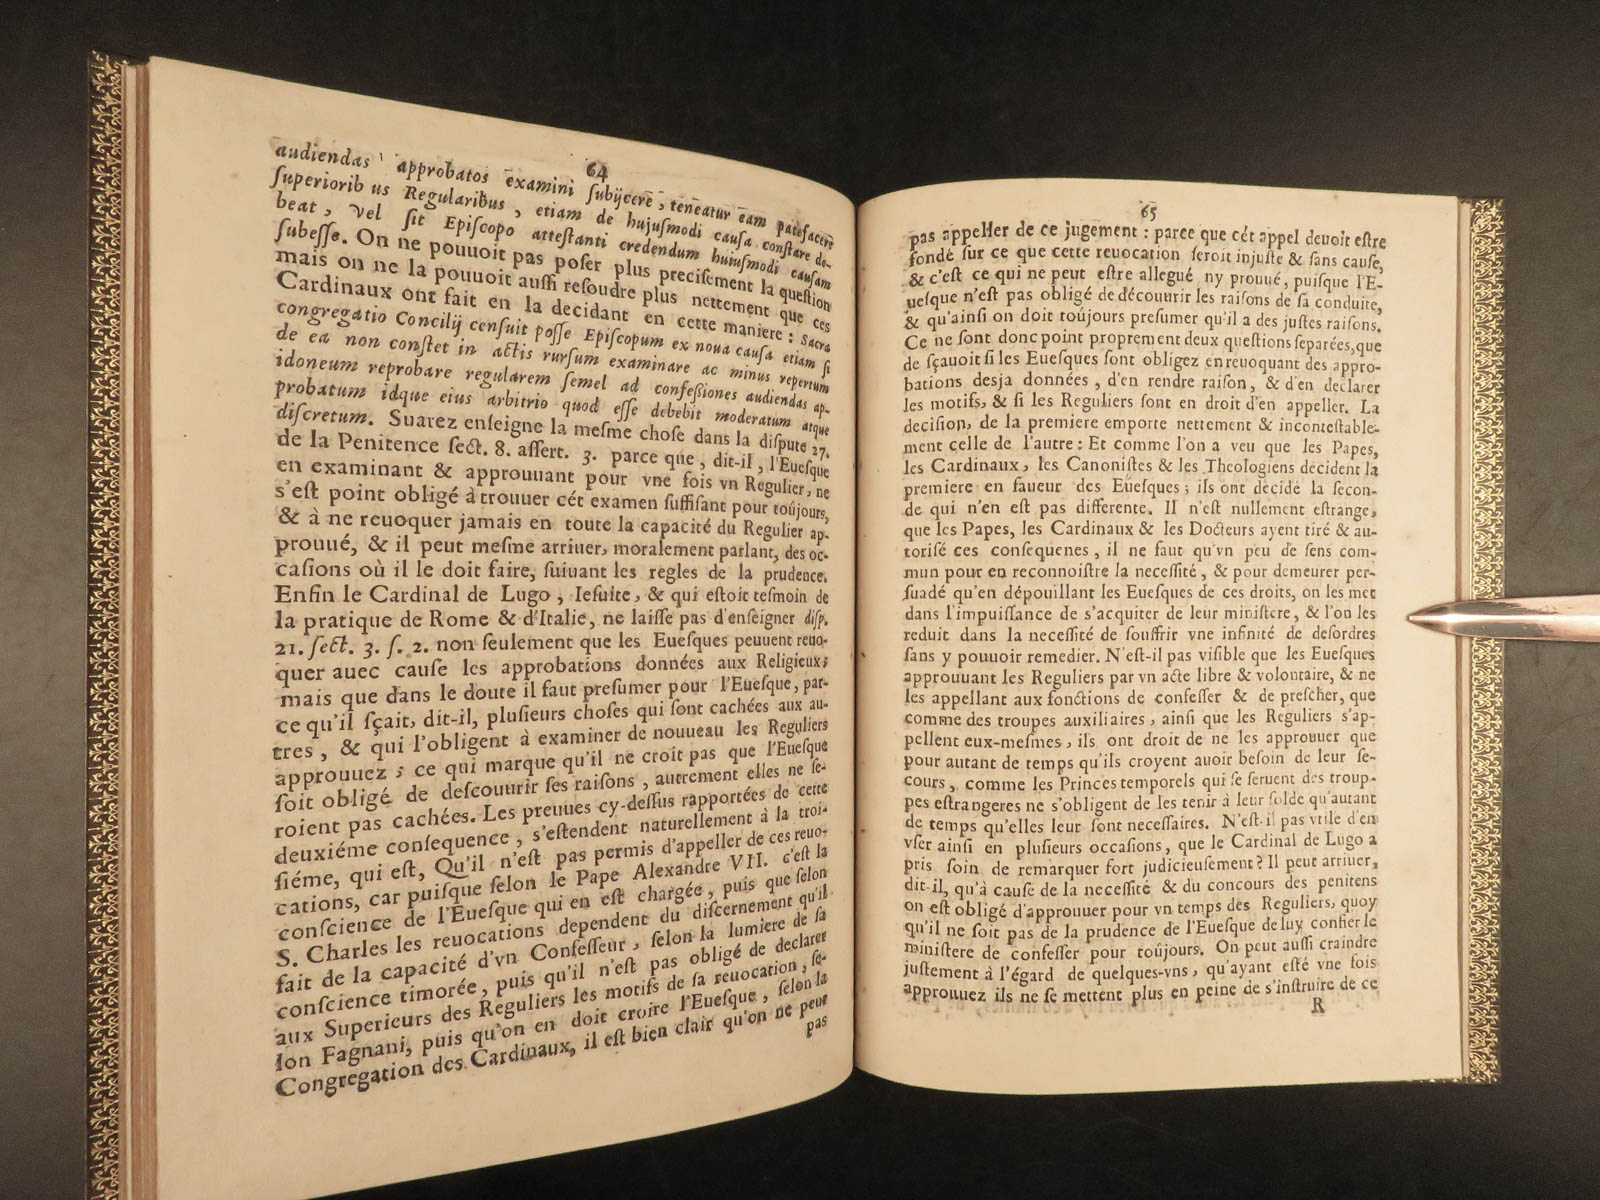 64
audiendas approbatos examini subijcere, teneatur eam patefacere
superiorib us Regularibus, etiam de hujusmodi causa constare de-
beat, vel sit Episcopo attestanti credendum huiusmodi causam
subesse. On ne pouuoit pas poser plus precisement la question
mais on ne la pouuoit aussi resoudre plus nettement que ces
Cardinaux ont fait en la decidant en cette maniere : Sacra
congregatio Concilij censuit posse Episcopum ex noua causa etiam si
de ea non constet in actis rursum examinare ac minus repertum
idoneum reprobare regularem semel ad confessiones audiendas ap-
probatum idque eius arbitrio quod esse debebit moderatum atque
discretum. Suarez enseigne la mesme chose dans la dispute 27.
de la Penitence sect. 8. assert. 3. parce que, dit-il, l'Euesque
en examinant & approuuant pour vne fois vn Regulier, ne
s'est point obligé à trouuer cét examen suffisant pour toûjours,
& à ne reuoquer jamais en toute la capacité du Regulier ap-
prouué, & il peut mesme arriuer, moralement parlant, des oc-
casions où il le doit faire, suiuant les regles de la prudence.
Enfin le Cardinal de Lugo, Iesuite, & qui estoit tesmoin de
la pratique de Rome & d'Italie, ne laisse pas d'enseigner disp.
21. sect. 3. s. 2. non seulement que les Euesques peuuent reuo-
quer auec cause les approbations données aux Religieux;
mais que dans le doute il faut presumer pour l'Euesque, par-
ce qu'il sçait, dit-il, plusieurs choses qui sont cachées aux au-
tres, & qui l'obligent à examiner de nouueau les Reguliers
approuuez ; ce qui marque qu'il ne croit pas que l'Euesque
soit obligé de descouurir ses raisons, autrement elles ne se-
roient pas cachées. Les preuues cy-dessus rapportées de cette
deuxiéme consequence, s'estendent naturellement à la troi-
siéme, qui est, Qu'il n'est pas permis d'appeller de ces reuo-
cations, car puisque selon le Pape Alexandre VII. c'est la
conscience de l'Euesque qui en est chargée, puis que selon
S. Charles les reuocations dependent du discernement qu'il
fait de la capacité d'vn Confesseur, selon la lumiere de sa
conscience timorée, puis qu'il n'est pas obligé de declarer
aux Superieurs des Reguliers les motifs de sa reuocation, se-
lon Fagnani, puis qu'on en doit croire l'Euesque, selon la
Congregation des Cardinaux, il est bien clair qu'on ne peut
pas
65
pas appeller de ce jugement : parce que cét appel deuoit estre
fondé sur ce que cette reuocation seroit injuste & sans cause,
& c'est ce qui ne peut estre allegué ny prouué, puisque l'E-
uesque n'est pas obligé de découurir les raisons de sa conduite,
& qu'ainsi on doit toûjours presumer qu'il a des justes raisons.
Ce ne sont donc point proprement deux questions separées, que
de sçauoit si les Euesques sont obligez en reuoquant des appro-
bations desja données, d'en rendre raison, & d'en declarer
les motifs, & si les Reguliers sont en droit d'en appeller. La
decision, de la premiere emporte nettement & incontestable-
ment celle de l'autre : Et comme l'on a veu que les Papes,
les Cardinaux, les Canonistes & les Theologiens decident la
premiere en faueur des Euesques ; ils ont décidé la secon-
de qui n'en est pas differente. Il n'est nullement estrange,
que les Papes, les Cardinaux & les Docteurs ayent tiré & au-
torisé ces consequenes, il ne faut qu'vn peu de sens com-
mun pour en reconnoistre la necessité, & pour demeurer per-
suadé qu'en dépouillant les Euesques de ces droits, on les met
dans l'impuissance de s'acquiter de leur ministere, & l'on les
reduit dans la necessité de souffrir vne infinité de desordres
sans y pouuoir remedier. N'est-il pas visible que les Euesques
approuuant les Reguliers par vn acte libre & volontaire, & ne
les appellant aux fonctions de confesser & de prescher, que
comme des troupes auxiliaires, ainsi que les Reguliers s'ap-
pellent eux-mesmes, ils ont droit de ne les approuuer que
pour autant de temps qu'ils croyent auoir besoin de leur se-
cours, comme les Princes temporels qui se seruent des troup-
pes estrangeres ne s'obligent de les tenir à leur solde qu'autant
de temps qu'elles leur sont necessaires. N'est-il pas vtile d'en
vser ainsi en plusieurs occasions, que le Cardinal de Lugo a
pris soin de remarquer fort judicieusement ? Il peut arriuer,
dit-il, qu'à cause de la necessité & du concours des penitens
on est obligé d'approuuer pour vn temps des Reguliers, quoy
qu'il ne soit pas de la prudence de l'Euesque de luy confier le
ministere de confesser pour toûjours. On peut aussi craindre
justement à l'égard de quelques-vns, qu'ayant esté vne fois
approuuez ils ne se mettent plus en peine de s'instruire de ce
R